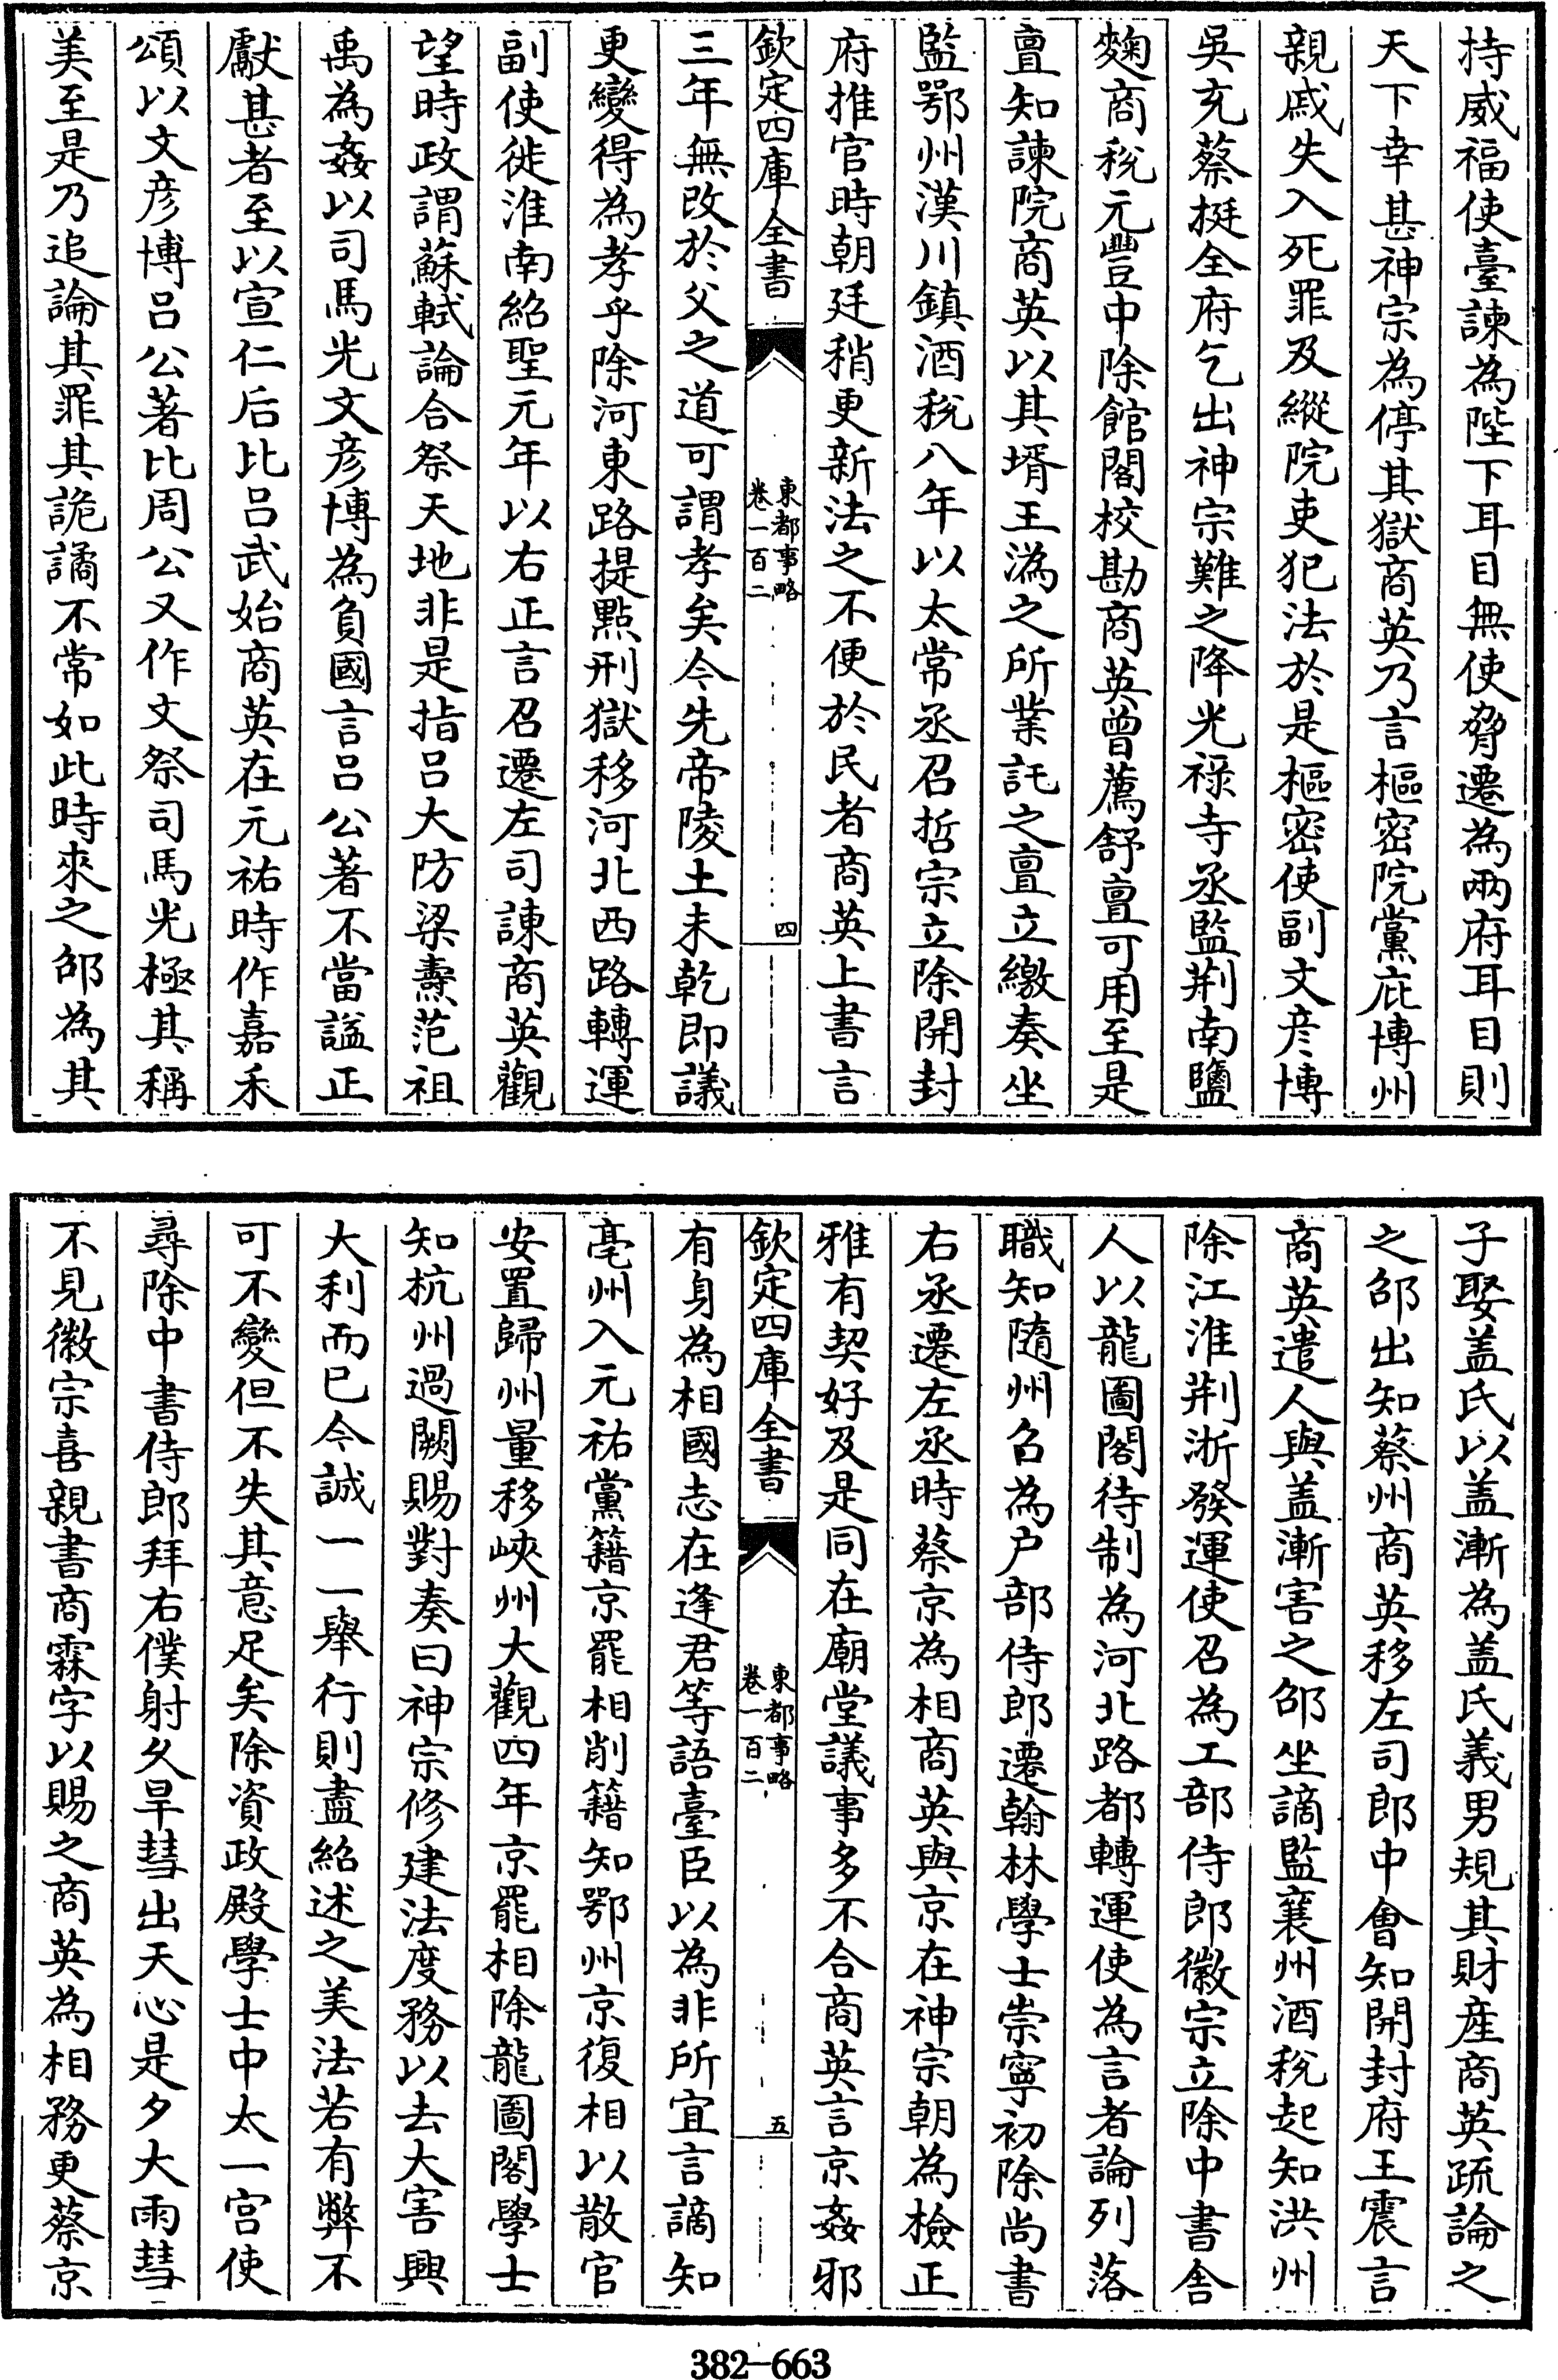 持威福使臺諫為陛下耳目無使脅遷為兩府耳目則
天下幸甚神宗為停其獄商英乃言樞密院黨庇博州
親戚失入死罪及縱院吏犯法於是樞密使副文彦博
吳充蔡挺全府乞出神宗難之降光祿寺丞監荆南鹽
麴商稅元豐中除館閣校勘商英曾薦舒亶可用至是
亶知諫院商英以其壻王溈之所業託之亶立繳奏坐
監鄂州漢川鎮酒稅八年以太常丞召哲宗立除開封
府推官時朝廷稍更新法之不便於民者商英上書言
欽定四庫全書
東都事略
卷一百二
四
三年無改於父之道可謂孝矣今先帝陵土未乾即議
更變得為孝乎除河東路提點刑獄移河北西路轉運
副使徙淮南紹聖元年以右正言召遷左司諫商英觀
望時政謂蘇軾論合祭天地非是指吕大防梁燾范祖
禹為姦以司馬光文彦博為負國言吕公著不當諡正
獻甚者至以宣仁后比吕武始商英在元祐時作嘉禾
頌以文彦博吕公著比周公又作文祭司馬光極其稱
美至是乃追論其罪其詭譎不常如此時來之邵為其
子娶盖氏以盖漸為盖氏義男規其財產商英疏論之
之邵出知蔡州商英移左司郎中會知開封府王震言
商英遣人與盖漸害之邵坐謫監襄州酒稅起知洪州
除江淮荆浙發運使召為工部侍郎徽宗立除中書舍
人以龍圖閣待制為河北路都轉運使為言者論列落
職知隨州召為户部侍郎遷翰林學士崇寧初除尚書
右丞遷左丞時蔡京為相商英與京在神宗朝為檢正
雅有契好及是同在廟堂議事多不合商英言京姦邪
欽定四庫全書
東都事略
卷一百二
五
有身為相國志在逢君等語臺臣以為非所宜言謫知
亳州入元祐黨籍京罷相削籍知鄂州京復相以散官
安置歸州量移峽州大觀四年京罷相除龍圖閣學士
知杭州過闕賜對奏曰神宗修建法度務以去大害興
大利而已今誠一一舉行則盡紹述之美法若有弊不
可不變但不失其意足矣除資政殿學士中太一宫使
尋除中書侍郎拜右僕射久旱彗出天心是夕大雨彗
不見徽宗喜親書商霖字以賜之商英為相務更蔡京
382-663